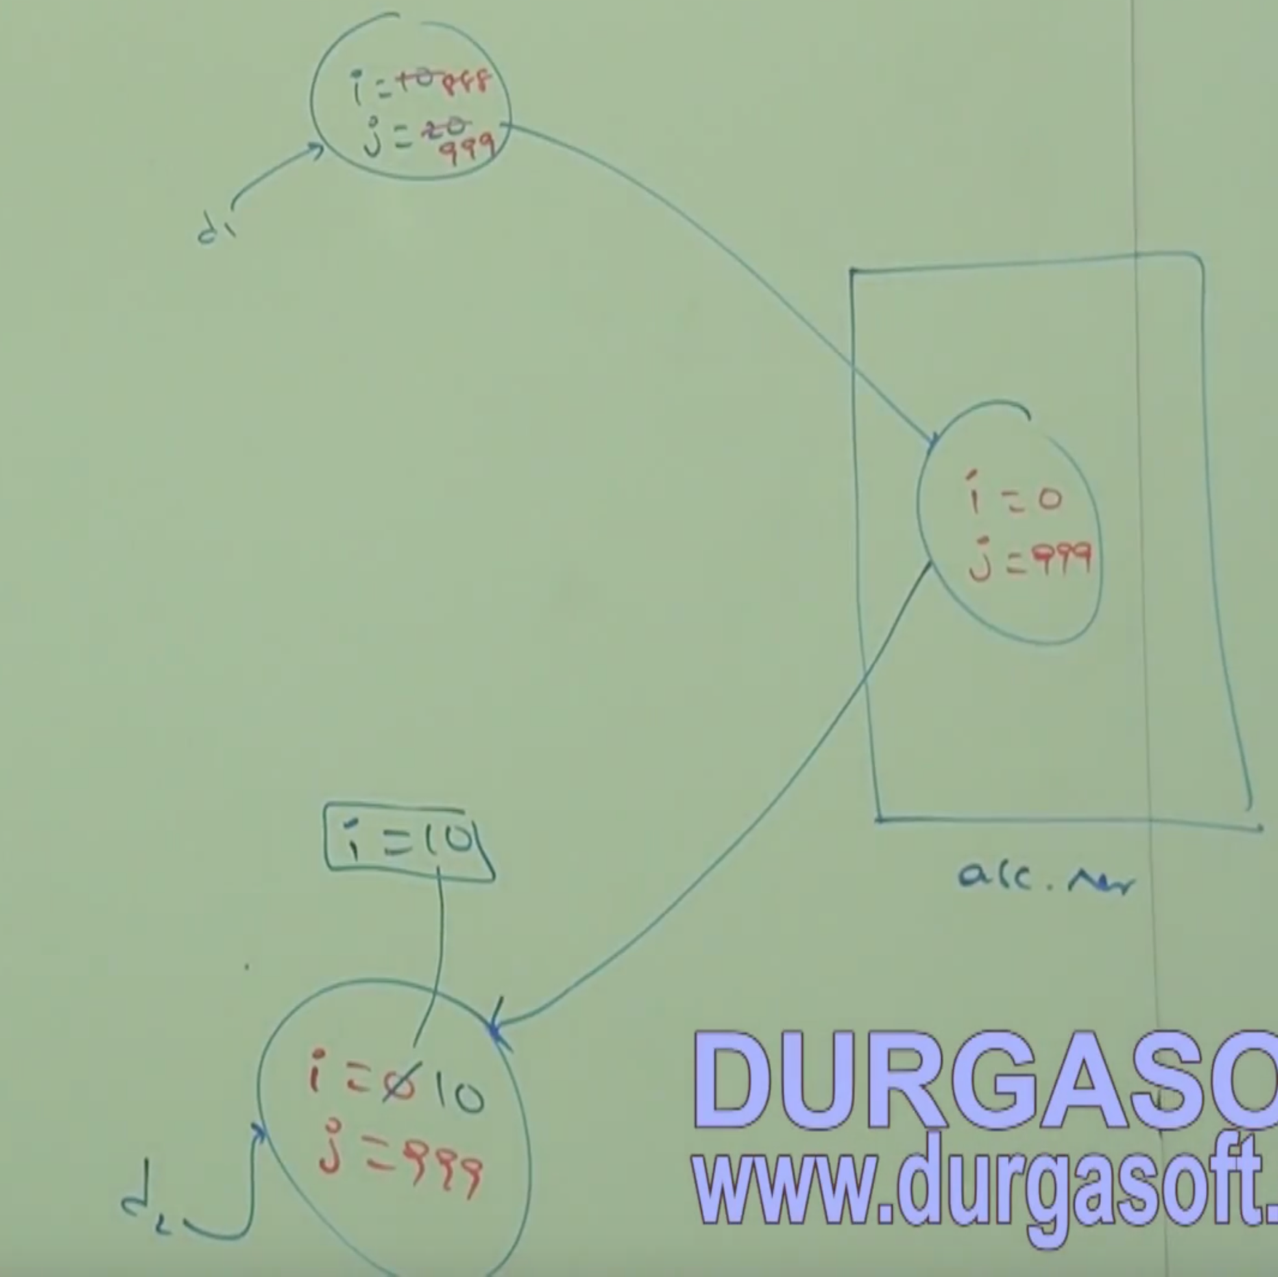 i = 10 888
j = 20
999
d1
i = 0
j = 999
i = 10
i = 0 10
j = 999
d2
DURGASO
www.durgasoft.